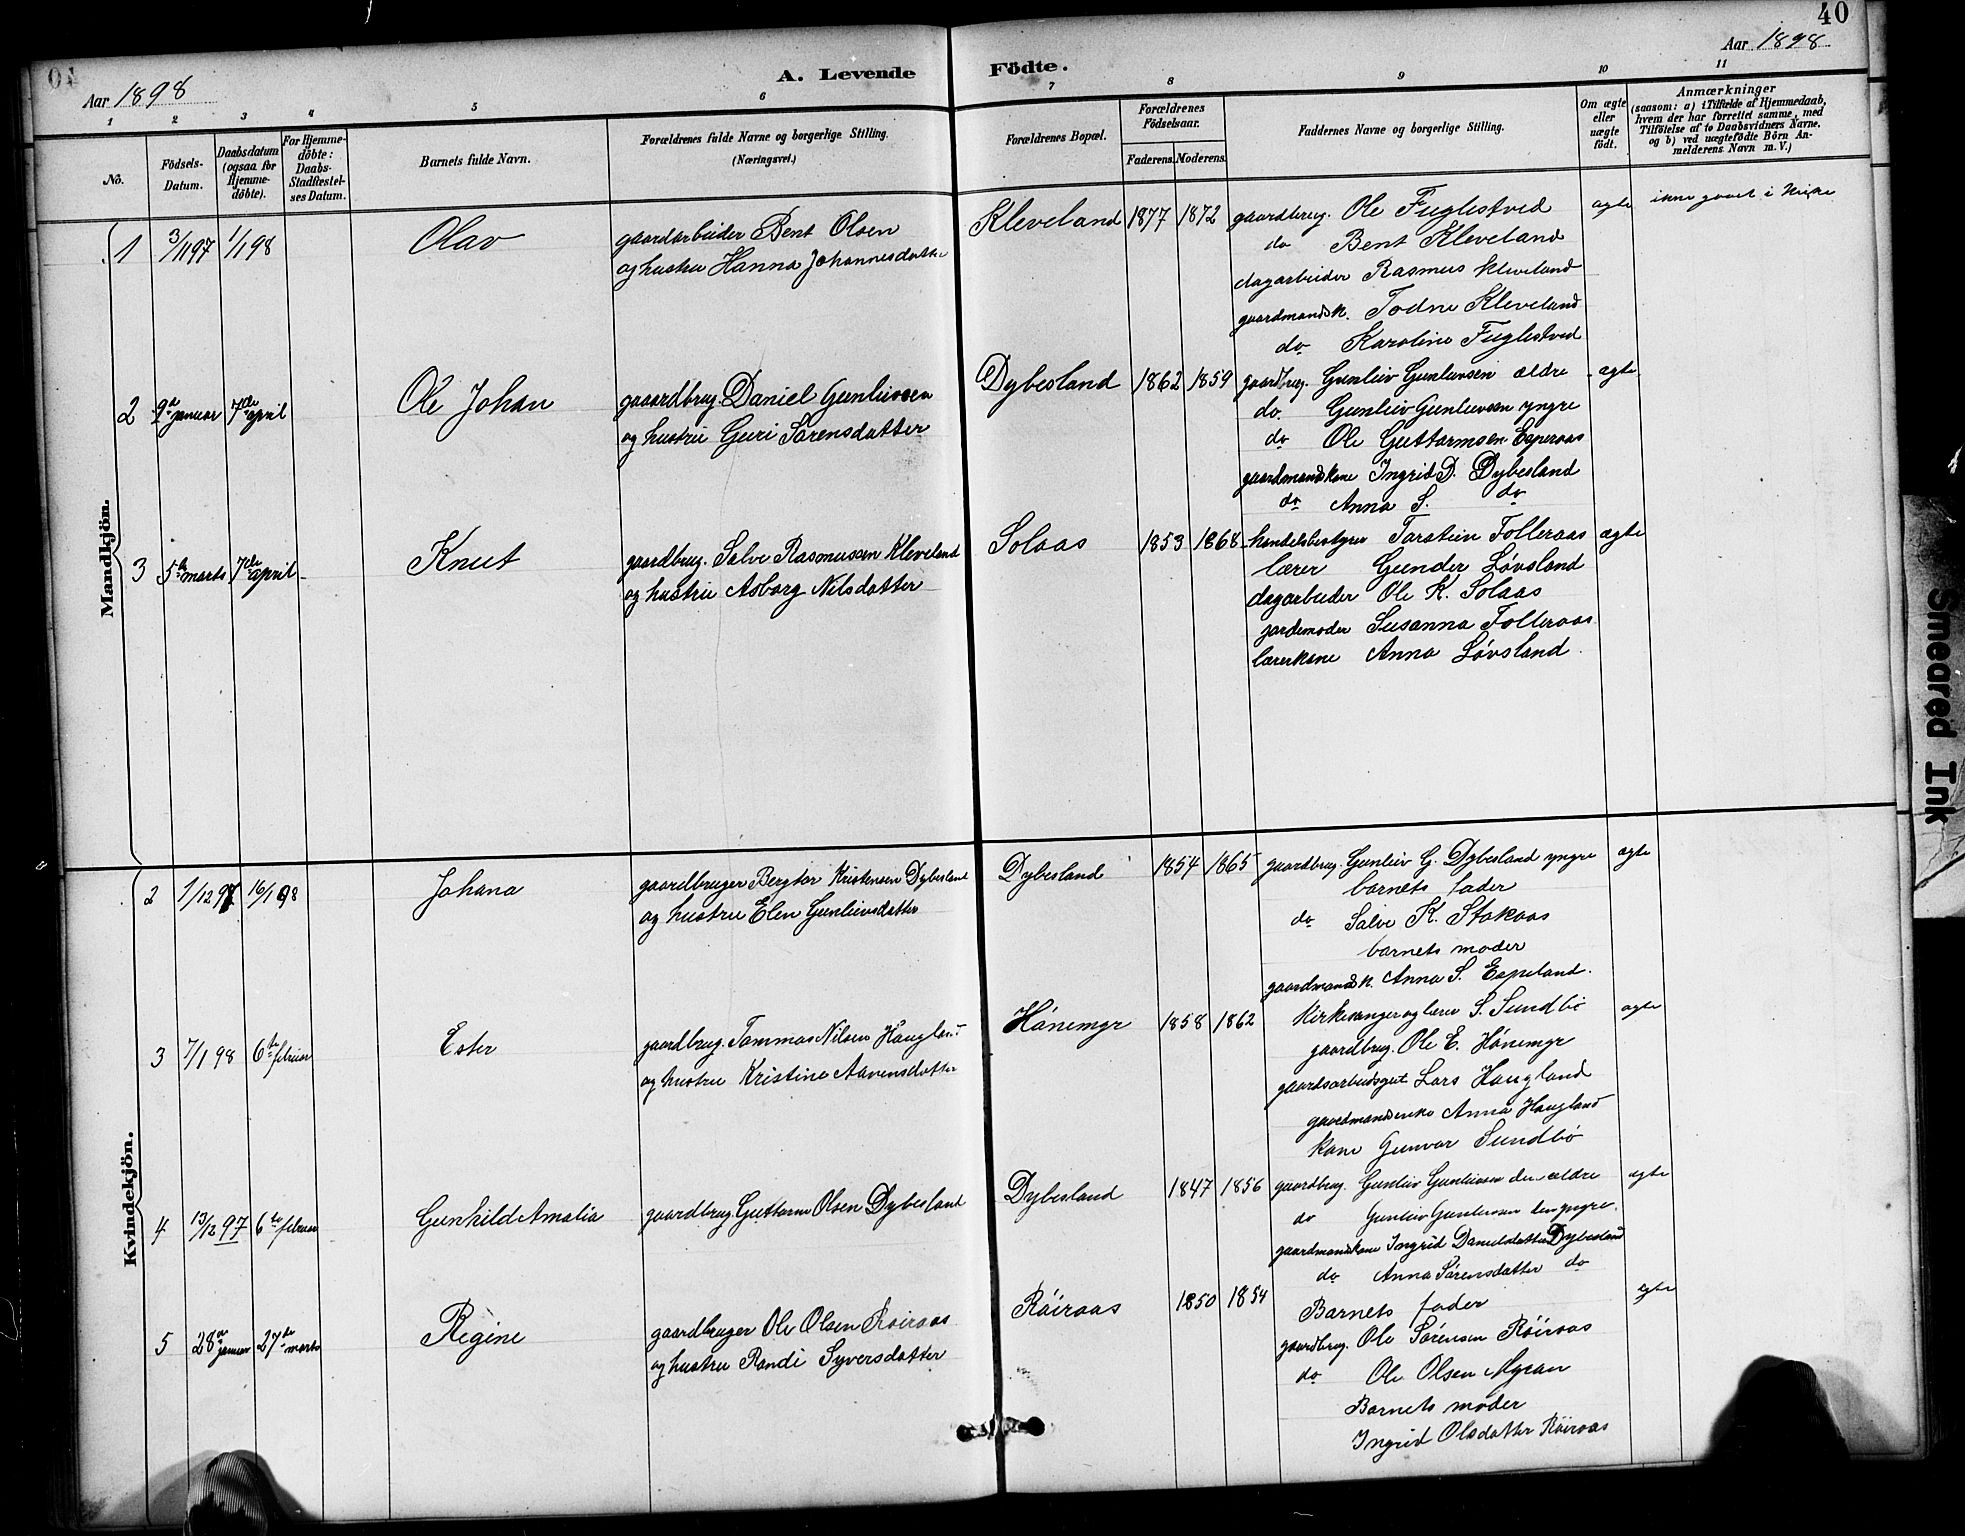 40
Aar 1898
A. Levende Födte.
Aar 1898
1 2 3 4 5 6 7 8 9 10 11
No.
Födsels-Datum.
Daabsdatum (ogsaa for Hjemme-döbte).
For Hjemme-döbte: Daabs-Stadfæstel-ses Datum.
Barnets fulde Navn.
Forældrenes fulde Navne og borgerlige Stilling.
(Næringsvei.)
Forældrenes Bopæl.
Forældrenes Födselsaar.
Faderens. Moderens.
Faddernes Navne og borgerlige Stilling.
Om ægte eller uægte födt.
Anmærkninger
(saasom: a) i Tilfælde af Hjemmedaab,
hvem der har forrettet samme, med
Tilföielse af to Daabsvidners Navne.
og b) ved uægtefödte Börn An-
melderens Navn m. V.)
Mandkjön.
1 3/1197 1/1 98 Olav
gaardarbeider Bent Olsen
og hustru Hanna Johannesdatter
Kleveland 1877 1872
gaardbrug. Ole Fuglestved
do Bent Kleveland
dagarbeider Rasmus Kleveland
gaardmandsk. Todne Kleveland
do Karoline Fuglestved
ægte
ikke gaaet i kirke
2 9de januar 7de april Ole Johan
gaaardbrug. Daniel Gunleivsen
og hustru Guri Sørensdatter
Dybesland 1862 1859
gaardbrug. Gunleiv Gunleivsen ældre
do. Gunleiv Gunleivsen yngre
do Ole Guttormsen Esperaas
gaardmandskone Ingrid D. Dybesland
do Anna S. do
ægte
3 5te marts 7de april Knut
gaardbrug. Salve Rasmussen Kleveland
og hustru Asborg Nilsdatter
Solaas 1853 1868
handelsbestyrer Tarstein Folleraas
lærer Gunder Løvsland
dagarbeider Ole K. Solaas
jordemoder Susanna Folleraas
lærerkone Anna Løvsland.
ægte
Kvindekjön.
2 1/12 97 16/1 98 Johana
gaardbruger Bergtor Kristensen Dybesland
og hustru Elen Gunleivsdatter
Dybesland 1854 1865
gaardbrug. Gunleiv G. Dybesland yngre
barnets fader
do Salve K. Stakaas
barnets moder
gaardmandsk. Anna S. Espeland.
ægte
3 7/1 98 6te februar Ester
gaardbrug. Tommas Nilsen Haugland
og hustru Kristine Aanensdatter
Hónemyr 1858 1862
Kirkesanger og lærer S. Sundbö
gaardbrug. Ole E. Hónemyr
gaardsarbeidsgut Lars Haugland
gaardmandsenke Anna Haugland
kone Gunvor Sundbö
ægte
4 13/12 97 6te februar Gunhild Amalia
gaardbrug. Guttorm Olsen Dybesland
Dybesland 1847 1856
gaardbrug. Gunleiv Gunleivsen den ældre
do Gunleiv Gunleivsen den yngre.
gaardmandskone Ingrid Danielsdatter Dybesland
do Anna Sørensdatter do
ægte
5 28de januar 27de marts Regine
gaardbruger Ole Olsen Röiraas
og hustru Randi Syversdatter
Röiraas 1850 1854
Barnets fader
gaardbrug. Ole Sørensen Röiraas
do Ole Olsen Myran
Barnets moder
Ingrid Olsdatter Röiraas
ægte
Smeared Ink